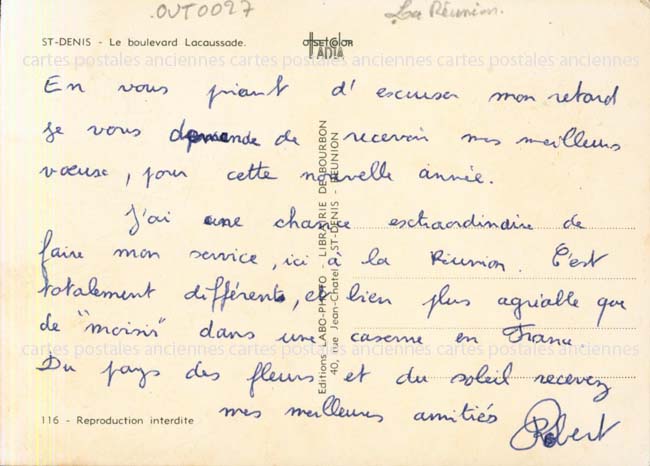 OUT0027
La Réunion.
ST-DENIS - Le boulevard Lacaussade.
OFFSETCOLOR
ADIA
cartes postales anciennes cartes postales anciennes cartes postales anciennes
En vous priant d'escuser mon retard
je vous demande de recevoir mes meilleurs
vœuse, pour cette nouvelle année.
J'ai une chance esctraordinaire de
faire mon service, ici à la Réunion. C'est
totalement différent, et bien plus agréable que
de "moisir" dans une caserne en France.
cartes postales anciennes cartes postales anciennes cartes postales anciennes
Du pays des fleurs et du soleil recevez
mes meilleures amitiés
Robert
116 - Reproduction interdite
Editions LABO-PHOTO - LIBRAIRIE DE BOURBON
40, rue Jean-Chatel - ST-DENIS - RÉUNION